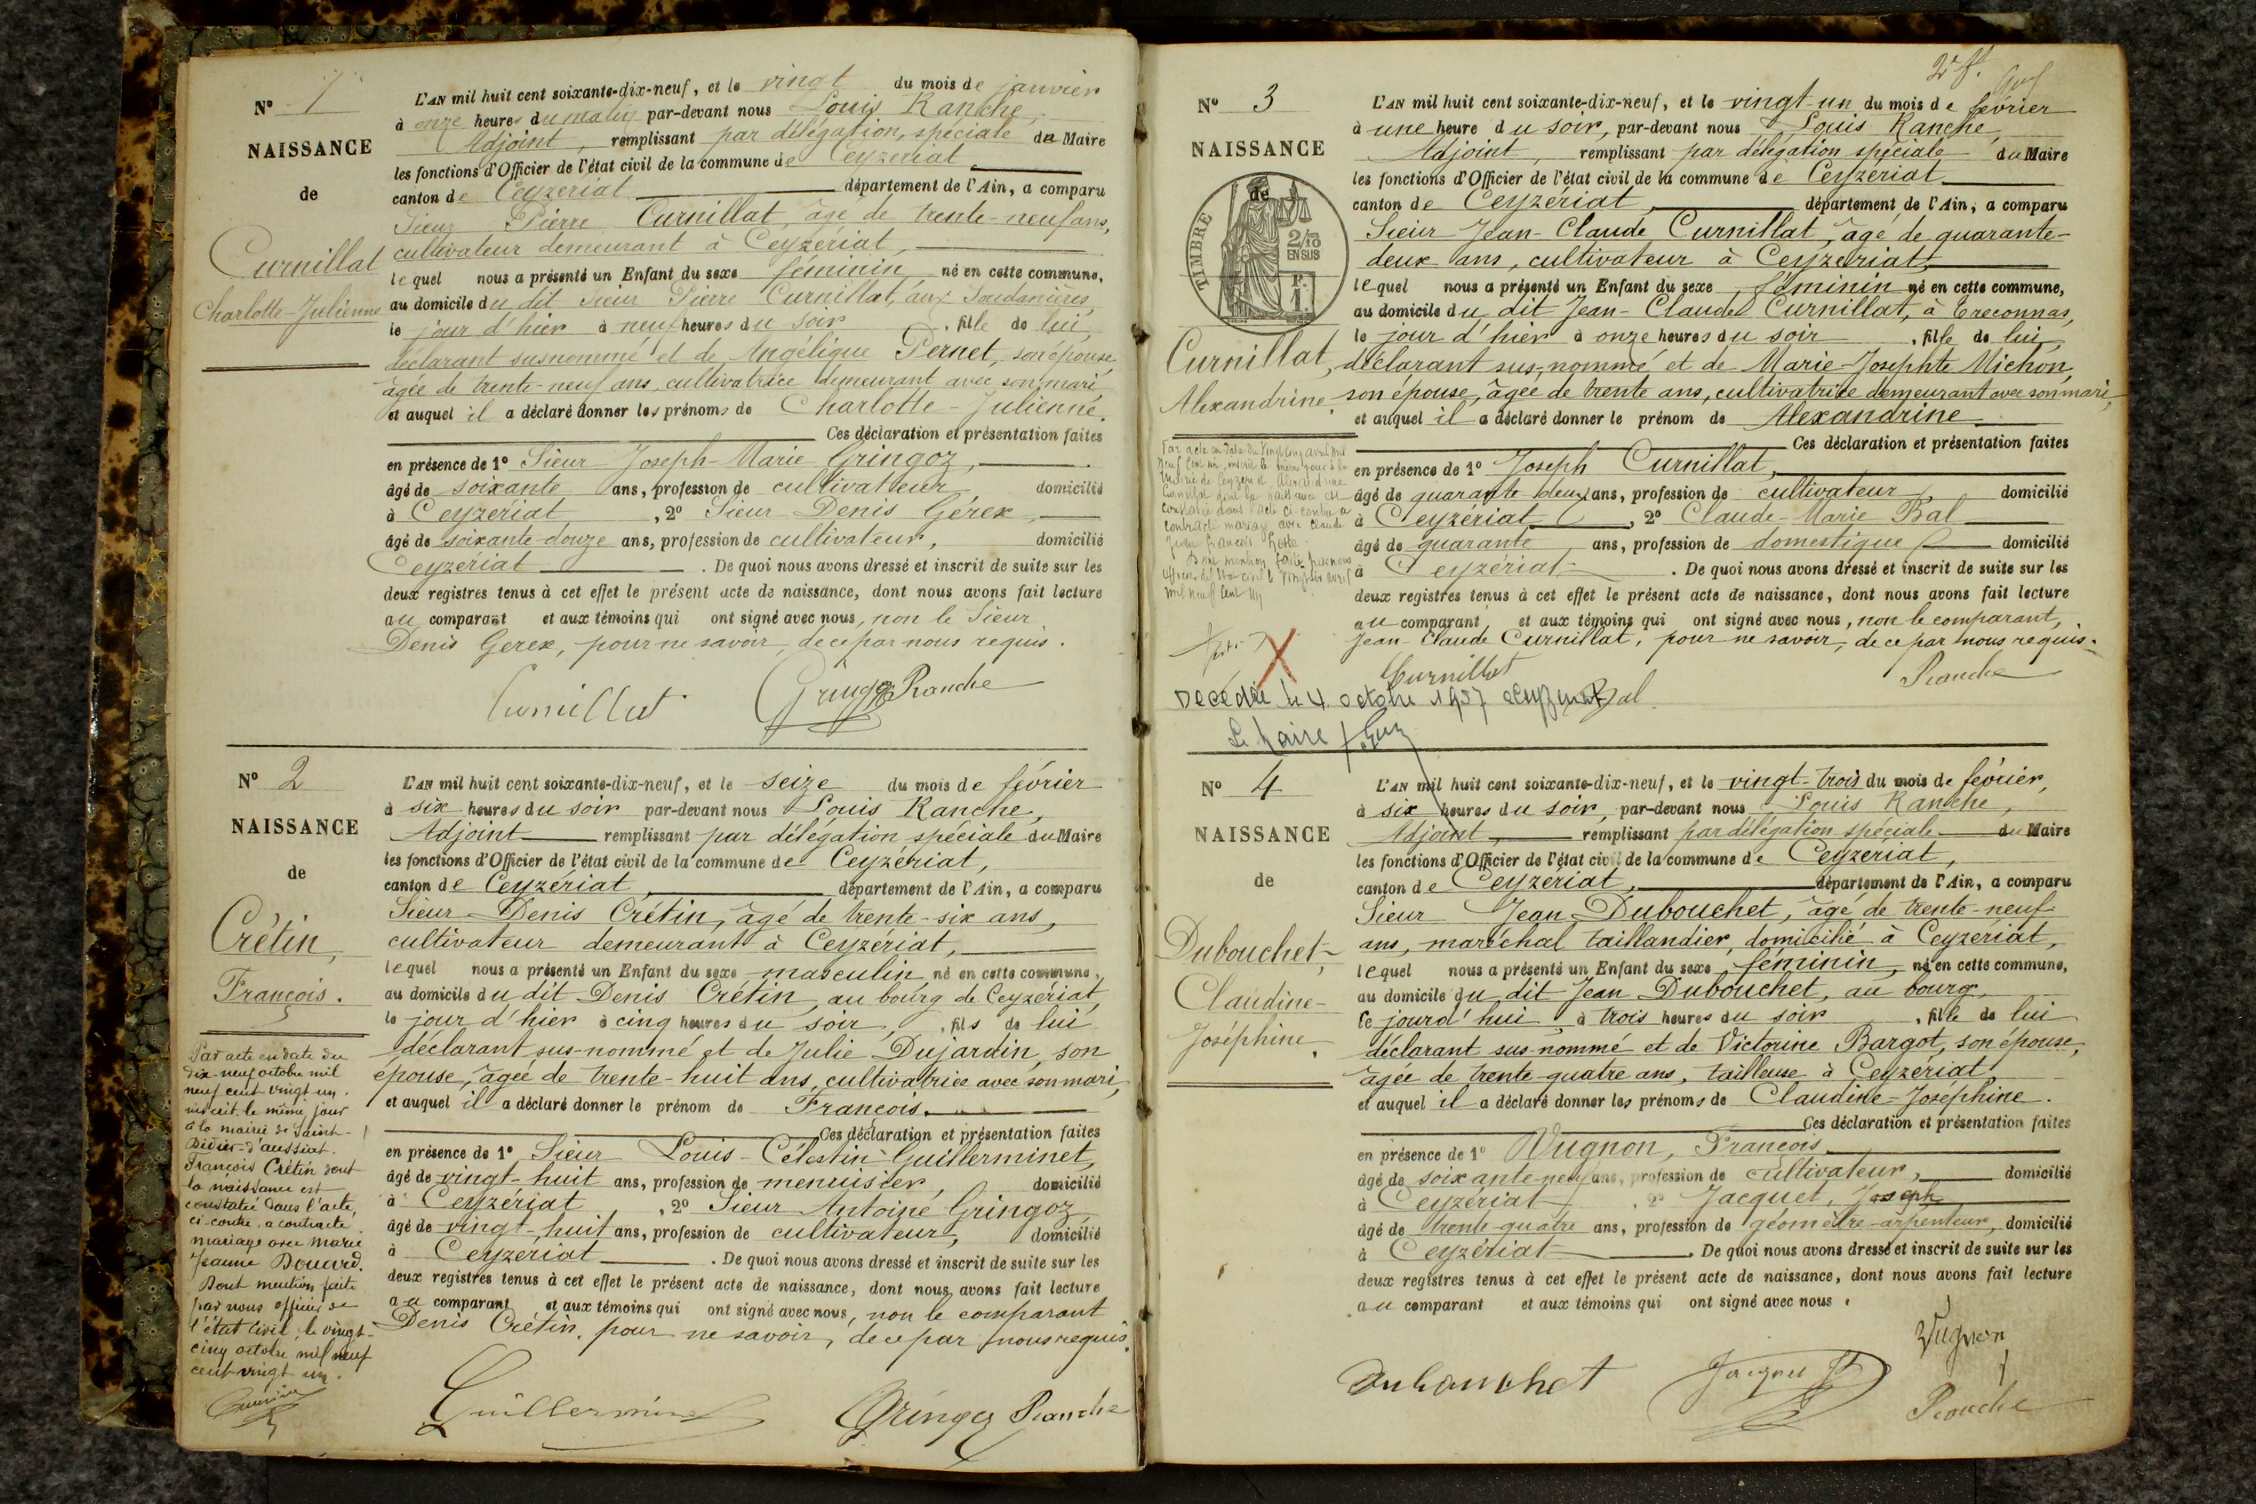 N° 1
NAISSANCE
de
Curnillat
Charlotte-Julienne
L'AN mil huit cent soixante-dix-neuf, et le vingt du mois de janvier
à onze heures du matin par-devant nous Louis Ranche,
Adjoint, remplissant par délégation spéciale du Maire
les fonctions d'Officier de l'état civil de la commune de Ceyzériat
canton de Ceyzériat département de l'Ain, a comparu
Sieur Pierre Curnillat, âgé de trente-neuf ans,
cultivateur demeurant à Ceyzériat,
lequel nous a présenté un Enfant du sexe féminin né en cette commune,
au domicile du dit sieur Pierre Curnillat, aux Soudanières,
le jour d'hier à neuf heures du soir, fille de lui
déclarant susnommé et de Angélique Pernet, son épouse,
âgée de trente-neuf ans, cultivatrice demeurant avec son mari
et auquel il a déclaré donner les prénoms de Charlotte-Julienne.
Ces déclaration et présentation faites
en présence de 1° Sieur Joseph-Marie Gringoz,
âgé de soixante ans, profession de cultivateur domicilié
à Ceyzériat, 2° Sieur Denis Gerex,
âgé de soixante-douze ans, profession de cultivateur, domicilié
Ceyzériat. De quoi nous avons dressé et inscrit de suite sur les
deux registres tenus à cet effet le présent acte de naissance, dont nous avons fait lecture
au comparant et aux témoins qui ont signé avec nous, non le Sieur
Denis Gerex, pour ne savoir, de ce par nous requis.
Curnillat Gringoz Ranche
N° 2
NAISSANCE
de
Crétin,
François.
L'AN mil huit cent soixante-dix-neuf, et le seize du mois de février
à six heures du soir par-devant nous Louis Ranche,
Adjoint remplissant par délégation spéciale du Maire
les fonctions d'Officier de l'état civil de la commune de Ceyzériat,
canton de Ceyzériat, département de l'Ain, a comparu
Sieur Denis Crétin, âgé de trente-six ans,
cultivateur demeurant à Ceyzériat,
lequel nous a présenté un Enfant du sexe masculin né en cette commune,
au domicile du dit Denis Crétin, au bourg de Ceyzériat,
le jour d'hier à cinq heures du soir, fils de lui
déclarant sus-nommé et de Julie Dujardin, son
épouse, âgée de trente-huit ans, cultivatrice avec son mari,
et auquel il a déclaré donner le prénom de François.
Ces déclaration et présentation faites
en présence de 1° Sieur Louis-Célestin Guillerminet,
âgé de vingt-huit ans, profession de menuisier, domicilié
à Ceyzériat, 2° Sieur Antoine Gringoz
âgé de vingt-huit ans, profession de cultivateur, domicilié
à Ceyzériat. De quoi nous avons dressé et inscrit de suite sur les
deux registres tenus à cet effet le présent acte de naissance, dont nous avons fait lecture
au comparant et aux témoins qui ont signé avec nous, non le comparant
Denis Crétin, pour ne savoir, de ce par nous requis.
Par acte en date du
dix-neuf octobre mil
neuf cent vingt un.
inscrit le même jour
à la mairie de Saint-
Didier-d'aussiat.
François Crétin dont
la naissance est
constatée dans l'acte,
ci-contre, a contracté
mariage avec Marie
Jeanne Bouvard.
Dont mention faite
par nous officier de
l'état civil, le vingt-
cinq octobre mil neuf
cent vingt un.
Guillerminet Gringoz Ranche
2e f.
N° 3
NAISSANCE
de
TIMBRE
2/10
EN SUS
Curnillat,
Alexandrine.
L'AN mil huit cent soixante-dix-neuf, et le vingt-un du mois de février
à une heure du soir, par-devant nous Louis Ranche,
Adjoint, remplissant par délégation spéciale du Maire
les fonctions d'Officier de l'état civil de la commune de Ceyzériat
canton de Ceyzériat, département de l'Ain, a comparu
Sieur Jean-Claude Curnillat, âgé de quarante-
deux ans, cultivateur à Ceyzériat,
lequel nous a présenté un Enfant du sexe féminin né en cette commune,
au domicile du dit Jean-Claude Curnillat, à Treconnas,
le jour d'hier à onze heures du soir, fille de lui
déclarant sus-nommé et de Marie-Josephte Michon,
son épouse, âgée de trente ans, cultivatrice demeurant avec son mari,
et auquel il a déclaré donner le prénom de Alexandrine
Ces déclaration et présentation faites
en présence de 1° Joseph Curnillat,
âgé de quarante deux ans, profession de cultivateur, domicilié
à Ceyzériat, 2° Claude-Marie Bal
âgé de quarante ans, profession de domestique domicilié
à Ceyzériat. De quoi nous avons dressé et inscrit de suite sur les
deux registres tenus à cet effet le présent acte de naissance, dont nous avons fait lecture
au comparant, et aux témoins qui ont signé avec nous, non le comparant,
Jean-Claude Curnillat, pour ne savoir, de ce par nous requis.
Par acte en date du vingt cinq avril mil
neuf cent un, inscrit le même jour à la
mairie de Ceyzériat Alexandrine
Curnillat dont la naissance est
constatée dans l'acte ci-contre a
contracté mariage avec Claude
François
Dont mention faite par nous
officier de l'état civil le vingt six avril
mil neuf cent un
Curnillat Bal Ranche
Décédée le 4 octobre 1957 à Ceyzériat
Le Maire
N° 4
NAISSANCE
de
Dubouchet,
Claudine-
Joséphine.
L'AN mil huit cent soixante-dix-neuf, et le vingt-trois du mois de février,
à six heures du soir, par-devant nous Louis Ranche,
Adjoint, remplissant par délégation spéciale du Maire
les fonctions d'Officier de l'état civil de la commune de Ceyzériat,
canton de Ceyzériat, département de l'Ain, a comparu
Sieur Jean Dubouchet, âgé de trente-neuf
ans, maréchal taillandier, domicilié à Ceyzériat,
lequel nous a présenté un Enfant du sexe féminin, né en cette commune,
au domicile du dit Jean Dubouchet, au bourg,
le jourd'hui, à trois heures du soir, fille de lui
déclarant sus-nommé et de Victorine Bargot, son épouse,
âgée de trente-quatre ans, tailleuse à Ceyzériat,
et auquel il a déclaré donner les prénoms de Claudine-Joséphine.
Ces déclaration et présentation faites
en présence de 1° Vugnon, François
âgé de soixante-neuf ans, profession de cultivateur, domicilié
à Ceyzériat, 2° Jacquet, Joseph
âgé de trente-quatre ans, profession de géomètre-arpenteur, domicilié
à Ceyzériat. De quoi nous avons dressé et inscrit de suite sur les
deux registres tenus à cet effet le présent acte de naissance, dont nous avons fait lecture
au comparant et aux témoins qui ont signé avec nous.
Dubouchet Jacquet Vugnon
Ranche